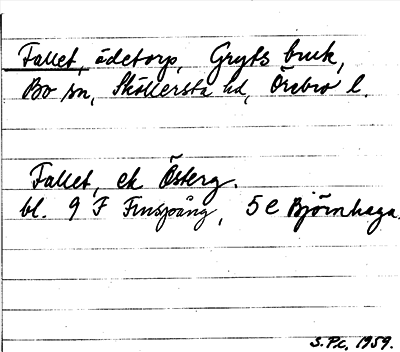 Fallet, ödetorp, Gryts bruk,
Bo sn, Sköllersta hd, Örebro l.
Fallet, ek Österg.
bl. 9 F Finspång, 5 e Björnhaga.
S.P.c. 1959.